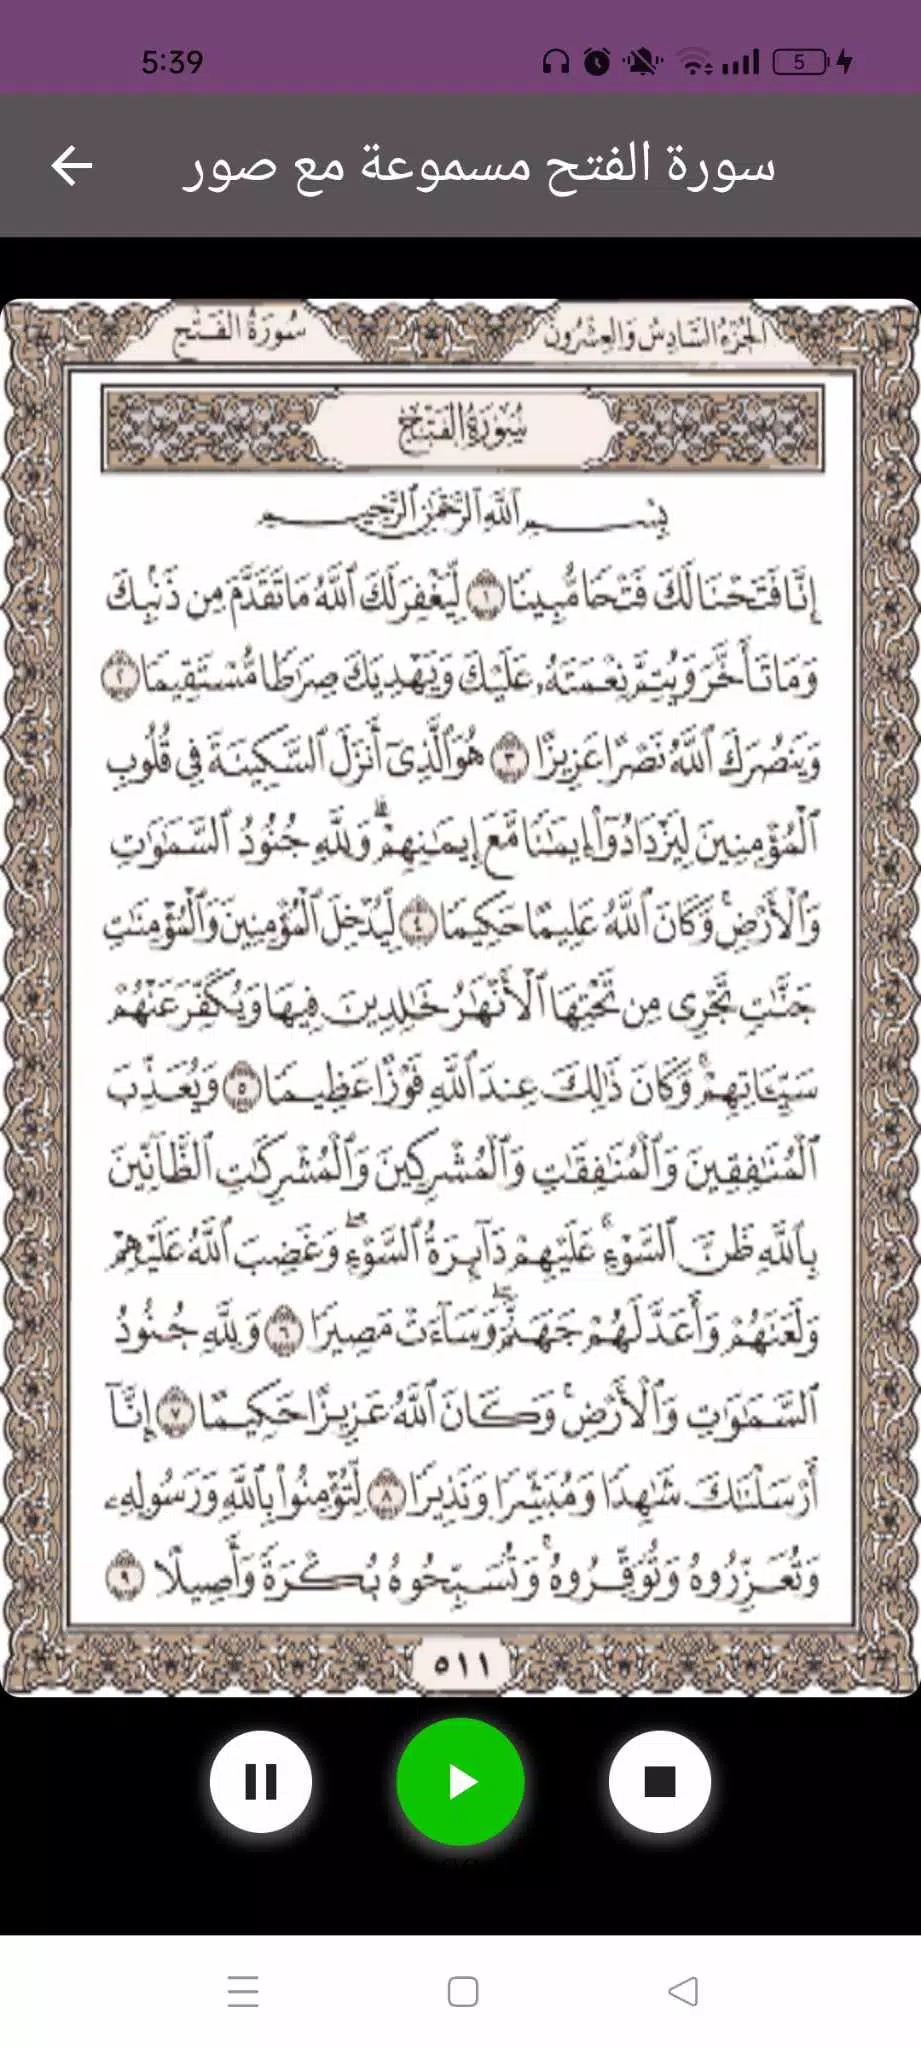 5:39
5
سورة الفتح مسموعة مع صور
الجزء السادس والعشرون
سورة الفتح
سُورَةُ الفَتْحِ
بِسْمِ ٱللَّهِ ٱلرَّحْمَٰنِ ٱلرَّحِيمِ
إِنَّا فَتَحْنَا لَكَ فَتْحًا مُّبِينًا ١ لِّيَغْفِرَ لَكَ ٱللَّهُ مَا تَقَدَّمَ مِن ذَنۢبِكَ
وَمَا تَأَخَّرَ وَيُتِمَّ نِعْمَتَهُۥ عَلَيْكَ وَيَهْدِيَكَ صِرَٰطًا مُّسْتَقِيمًا ٢
وَيَنصُرَكَ ٱللَّهُ نَصْرًا عَزِيزًا ٣ هُوَ ٱلَّذِىٓ أَنزَلَ ٱلسَّكِينَةَ فِى قُلُوبِ
ٱلْمُؤْمِنِينَ لِيَزْدَادُوٓا۟ إِيمَٰنًا مَّعَ إِيمَٰنِهِمْ ۗ وَلِلَّهِ جُنُودُ ٱلسَّمَٰوَٰتِ
وَٱلْأَرْضِ ۚ وَكَانَ ٱللَّهُ عَلِيمًا حَكِيمًا ٤ لِّيُدْخِلَ ٱلْمُؤْمِنِينَ وَٱلْمُؤْمِنَٰتِ
جَنَّٰتٍ تَجْرِى مِن تَحْتِهَا ٱلْأَنْهَٰرُ خَٰلِدِينَ فِيهَا وَيُكَفِّرَ عَنْهُمْ
سَيِّـَٔاتِهِمْ ۚ وَكَانَ ذَٰلِكَ عِندَ ٱللَّهِ فَوْزًا عَظِيمًا ٥ وَيُعَذِّبَ
ٱلْمُنَٰفِقِينَ وَٱلْمُنَٰفِقَٰتِ وَٱلْمُشْرِكِينَ وَٱلْمُشْرِكَٰتِ ٱلظَّآنِّينَ
بِٱللَّهِ ظَنَّ ٱلسَّوْءِ ۚ عَلَيْهِمْ دَآئِرَةُ ٱلسَّوْءِ ۖ وَغَضِبَ ٱللَّهُ عَلَيْهِمْ
وَلَعَنَهُمْ وَأَعَدَّ لَهُمْ جَهَنَّمَ ۖ وَسَآءَتْ مَصِيرًا ٦ وَلِلَّهِ جُنُودُ
ٱلسَّمَٰوَٰتِ وَٱلْأَرْضِ ۚ وَكَانَ ٱللَّهُ عَزِيزًا حَكِيمًا ٧ إِنَّآ
أَرْسَلْنَٰكَ شَٰهِدًا وَمُبَشِّرًا وَنَذِيرًا ٨ لِّتُؤْمِنُوا۟ بِٱللَّهِ وَرَسُولِهِۦ
وَتُعَزِّرُوهُ وَتُوَقِّرُوهُ ۚ وَتُسَبِّحُوهُ بُكْرَةً وَأَصِيلًا ٩
٥١١